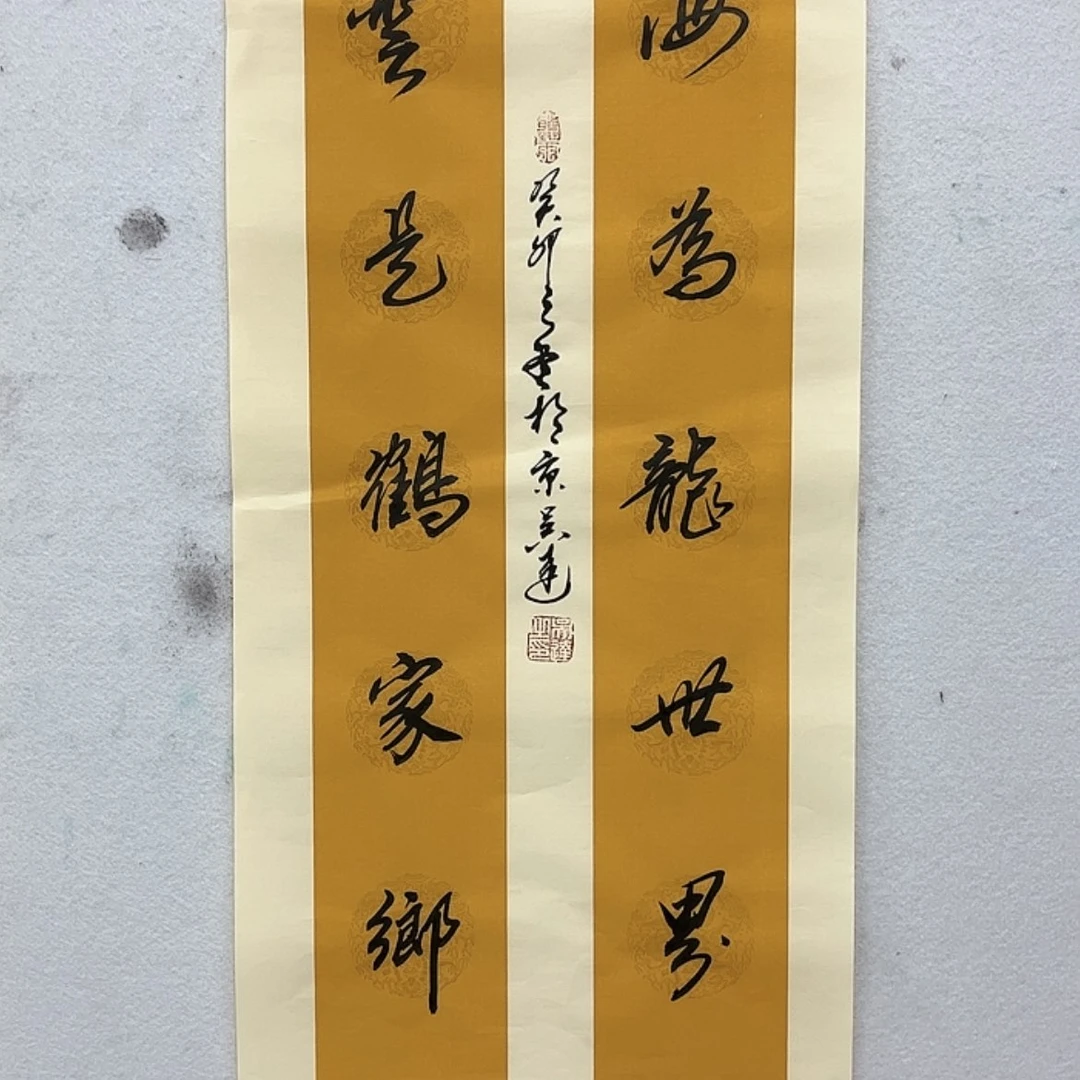 海為龍世界
雲是鶴家鄉
癸卯之夏於京吳達